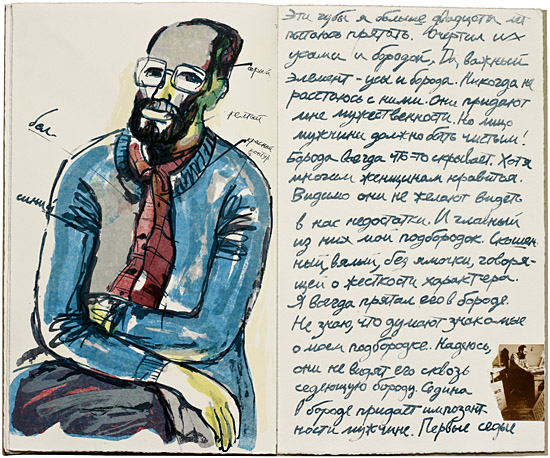 бел.
синий
серый
желтый
красный
контур
Эти губы я больше двадцати лет
пытаюсь прятать. Очертил их
усами и бородой. Да, важный
элемент - усы и борода. Никогда не
расстаюсь с ними. Они придают
мне мужественности. Но лицо
мужчины должно быть чистым!
Борода всегда что-то скрывает. Хотя
многим женщинам нравится.
Видимо они не желают видеть
в нас недостатки. И главный
из них мой подбородок. Скошен-
ный, вялый, без ямочки, говоря-
щей о жесткости характера.
Я всегда прятал его в бороде.
Не знаю, что думают знакомые
о моем подбородке. Надеюсь,
они не видят его сквозь
седеющую бороду. Седина
в бороде придаёт импозант-
ности мужчине. Первые седые